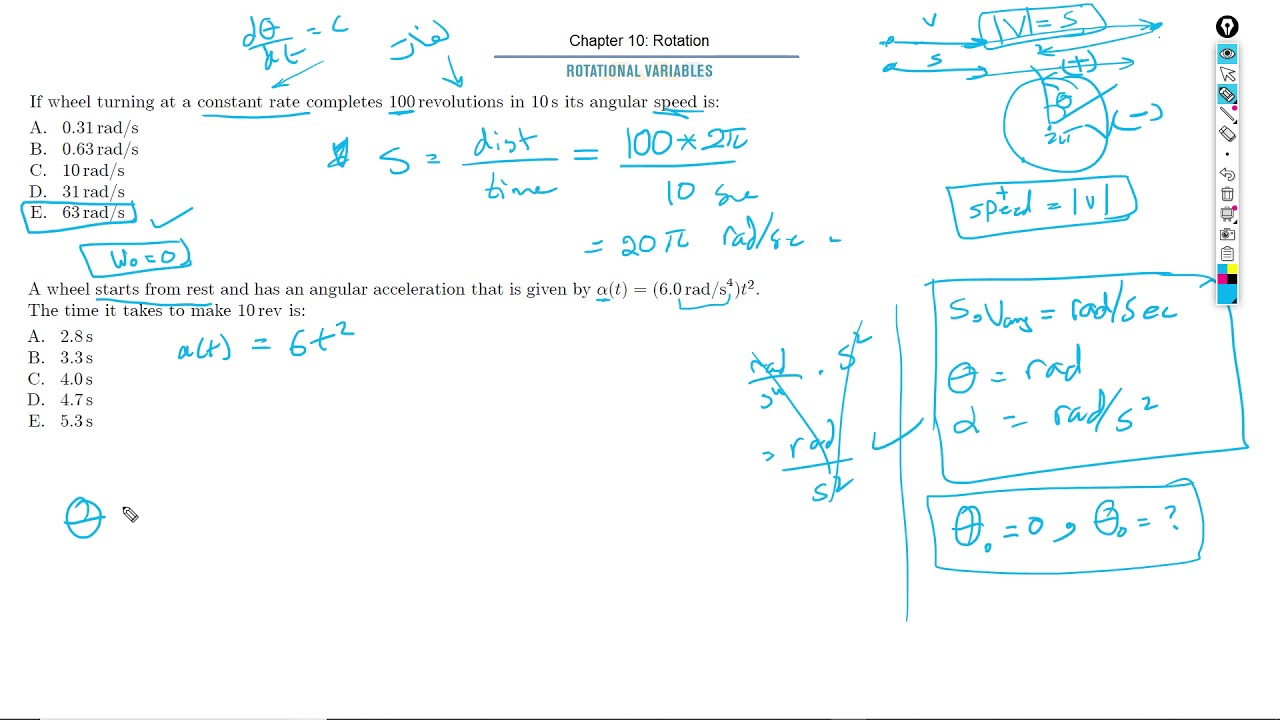 dθ/dt = c
Chapter 10: Rotation
ROTATIONAL VARIABLES
v
|V| = S
s
(+)
θ
2π
(-)
If wheel turning at a constant rate completes 100 revolutions in 10 s its angular speed is:
A. 0.31 rad/s
B. 0.63 rad/s
C. 10 rad/s
D. 31 rad/s
E. 63 rad/s
S = dist/time = 100*2π/10 sec
= 20π rad/sec
speed = |v|
W₀=0
A wheel starts from rest and has an angular acceleration that is given by α(t) = (6.0 rad/s⁴)t².
The time it takes to make 10 rev is:
A. 2.8 s
B. 3.3 s
C. 4.0 s
D. 4.7 s
E. 5.3 s
α(t) = 6t²
rad/s⁴ . s²
= rad/s²
S, Vang = rad/sec
θ = rad
α = rad/s²
θ₀ = 0, θ₀ = ?
θ